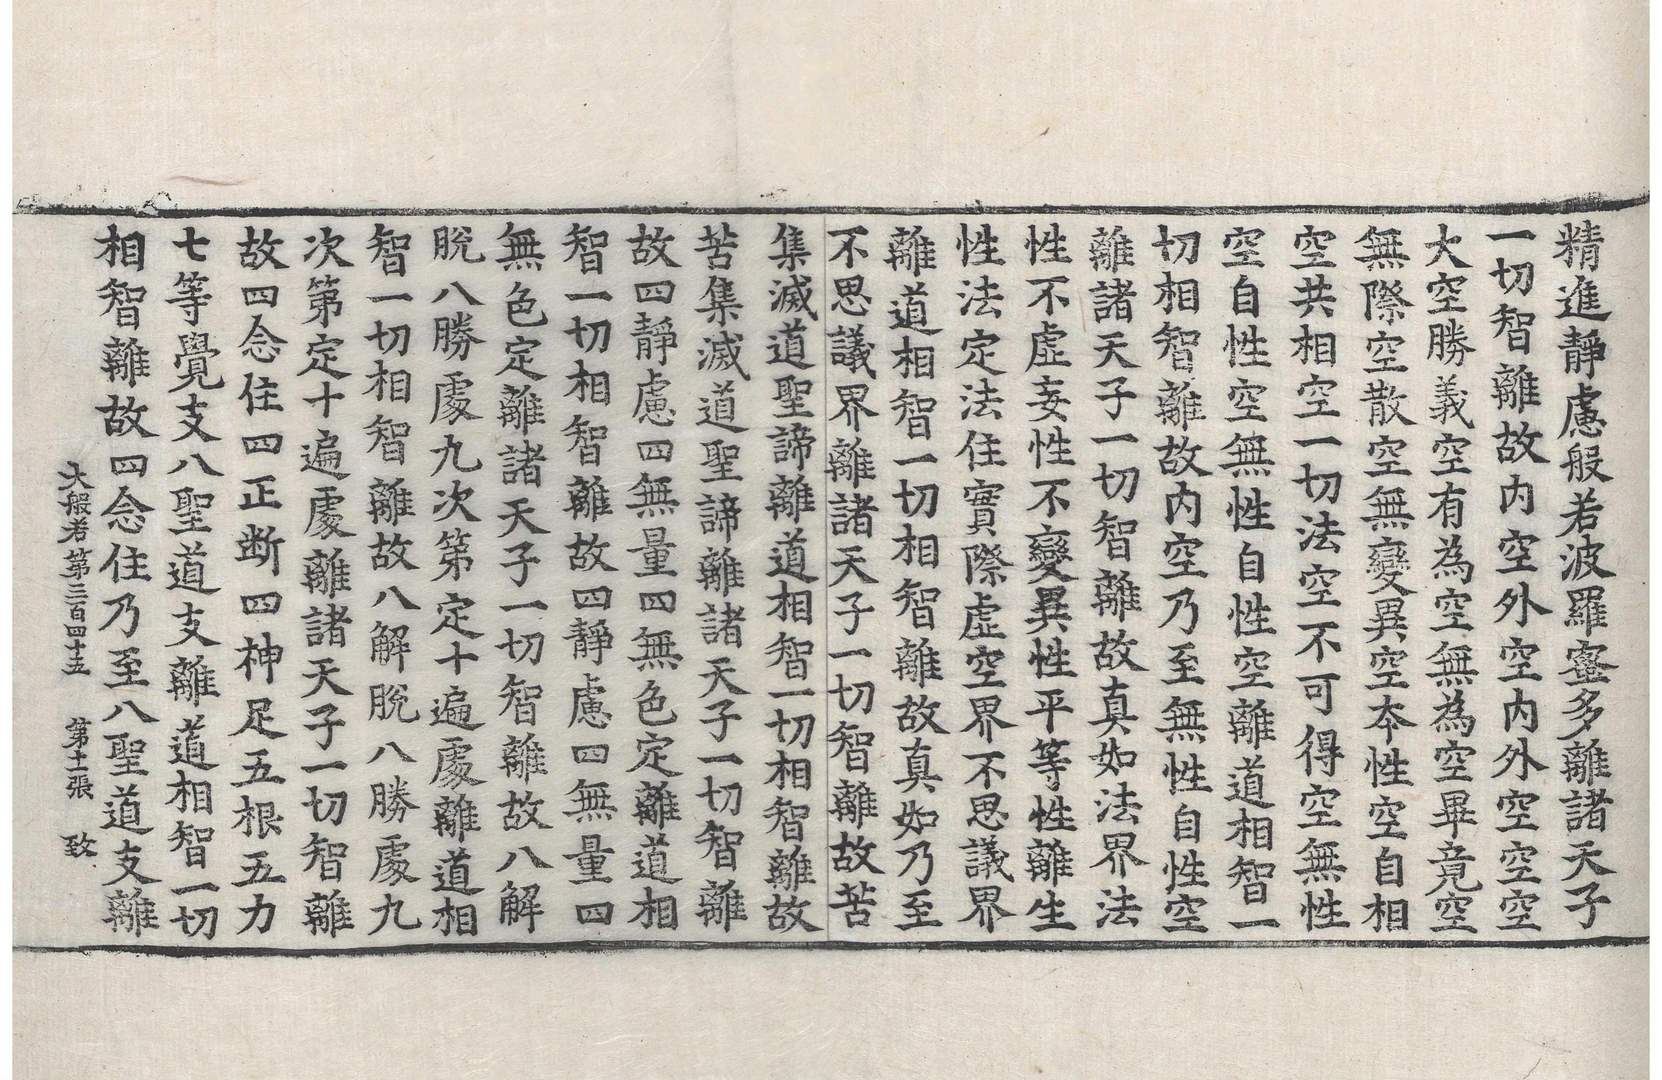 精進靜慮般若波羅蜜多離諸天子
一切智離故內空外空內外空空空
大空勝義空有為空無為空畢竟空
無際空散空無變異空本性空自相
空共相空一切法空不可得空無性
空自性空無性自性空離道相智一
切相智離故內空乃至無性自性空
離諸天子一切智離故真如法界法
性不虛妄性不變異性平等性離生
性法定法住實際虛空界不思議界
離道相智一切相智離故真如乃至
不思議界離諸天子一切智離故苦
集滅道聖諦離道相智一切相智離故
苦集滅道聖諦離諸天子一切智離
故四靜慮四無量四無色定離道相
智一切相智離故四靜慮四無量四
無色定離諸天子一切智離故八解
脫八勝處九次第定十遍處離道相
智一切相智離故八解脫八勝處九
次第定十遍處離諸天子一切智離
故四念住四正断四神足五根五力
七等覺支八聖道支離道相智一切
相智離故四念住乃至八聖道支離
大般若第三百四十五 第十二張 致